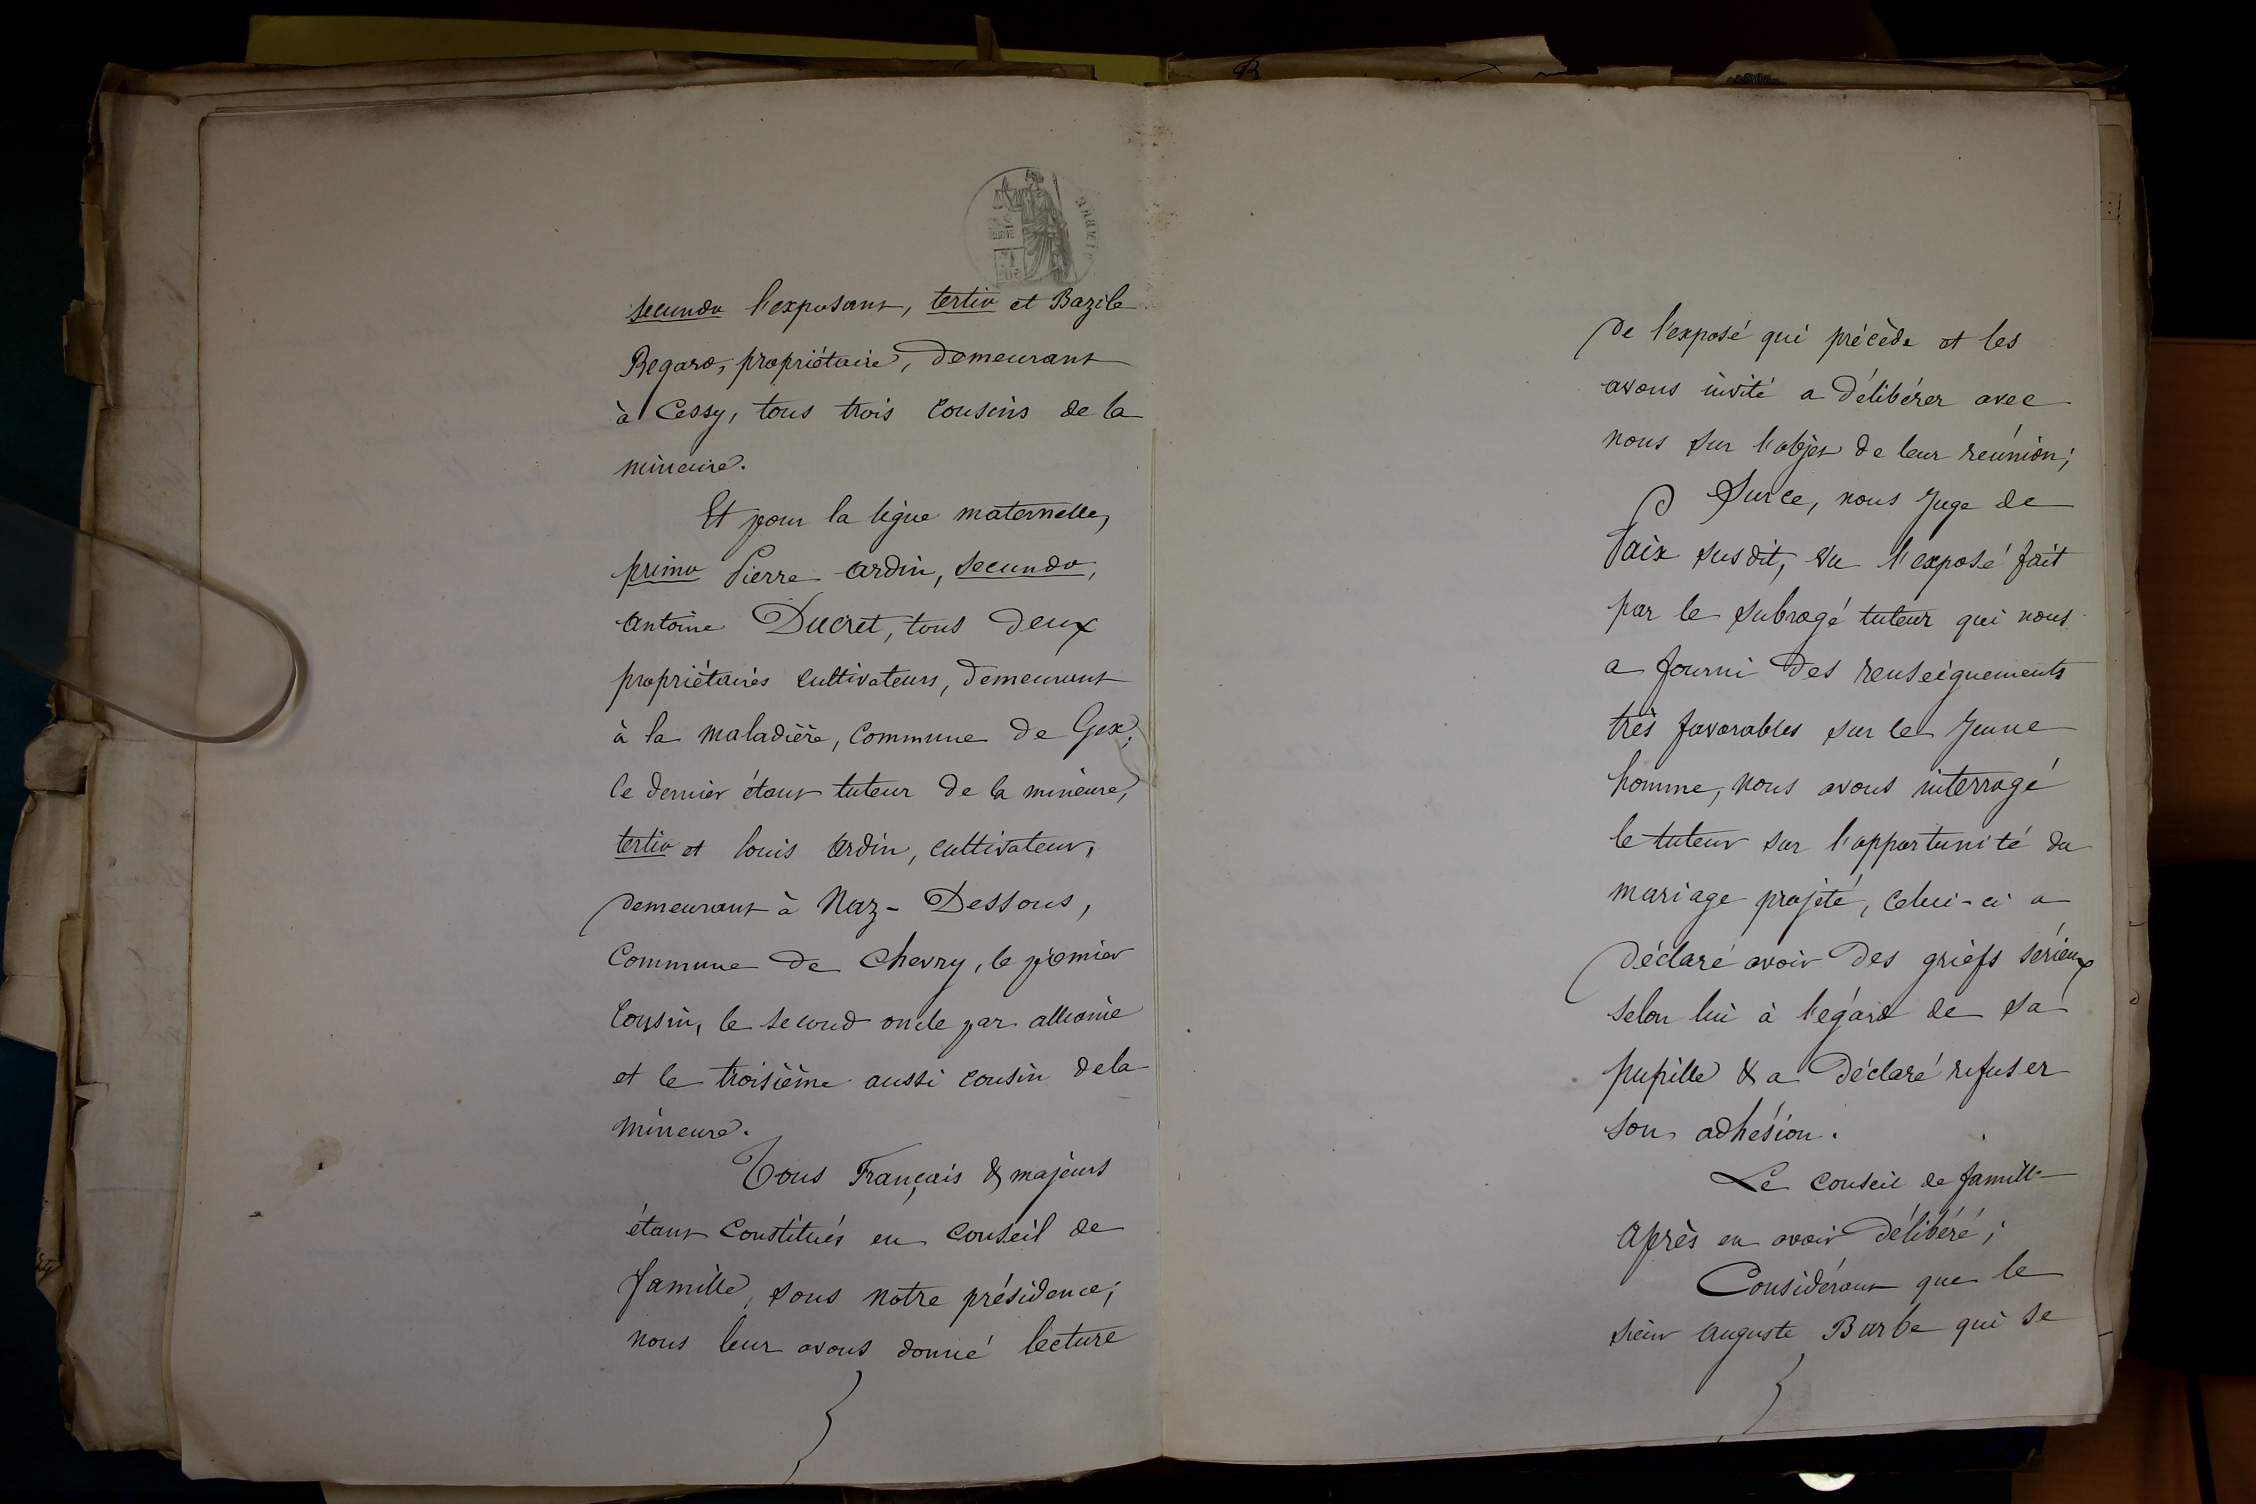 secundo l'exposant, tertio et Bazile
Regard, propriétaire, demeurant
à Cessy, tous trois cousins de la
mineure.
Et pour la ligne maternelle,
primo Pierre Ardin, secundo,
Antoine Ducret, tous deux
propriétaires cultivateurs, demeurant
à la maladière, commune de Gex,
ce dernier étant tuteur de la mineure,
tertio et Louis Ardin, cultivateur,
demeurant à Naz-Dessous,
commune de Chevry, le premier
cousin, le second oncle par alliance
et le troisième aussi cousin de la
mineure.
Tous Français & majeurs
étant constitués en conseil de
famille, sous notre présidence;
nous leur avons donné lecture
de l'exposé qui précède et les
avons invité a délibérer avec
nous sur l'objet de leur réunion;
Sur ce, nous Juge de
Paix susdit, Vu l'exposé fait
par le subrogé tuteur qui nous
a fourni des renseignements
très favorables sur le Jeune
homme, nous avons interrogé
le tuteur sur l'opportunité du
mariage projeté, celui-ci a
déclaré avoir des griefs sérieux
selon lui à l'égard de sa
pupille & a déclaré refuser
son adhésion.
Le conseil de famille
Après en avoir délibéré;
Considérant que le
sieur Auguste Barbe qui se